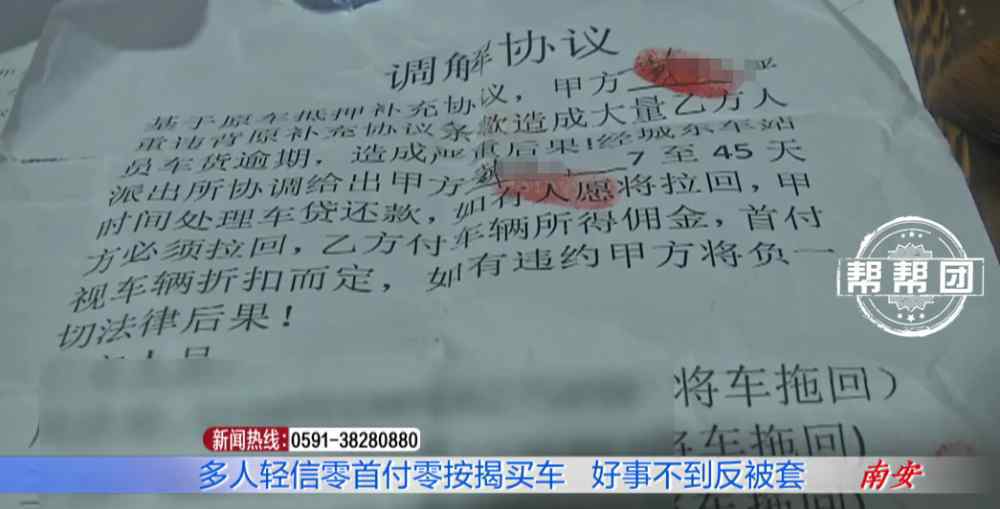 调解协议
基于原车抵押补充协议，甲方 严
重违背原补充协议条款造成大量乙方人
员车贷逾期，造成严重后果！经城东车站
派出所协调给出甲方 7 至 45 天
时间处理车贷还款，如有人愿将拉回，甲
方必须拉回，乙方付车辆所得佣金，首付
视车辆折扣而定，如有违约甲方将负一
切法律后果！
帮帮团
将车拖回）
车拖回)
新闻热线: 0591-38280880
多人轻信零首付零按揭买车 好事不到反被套
南安